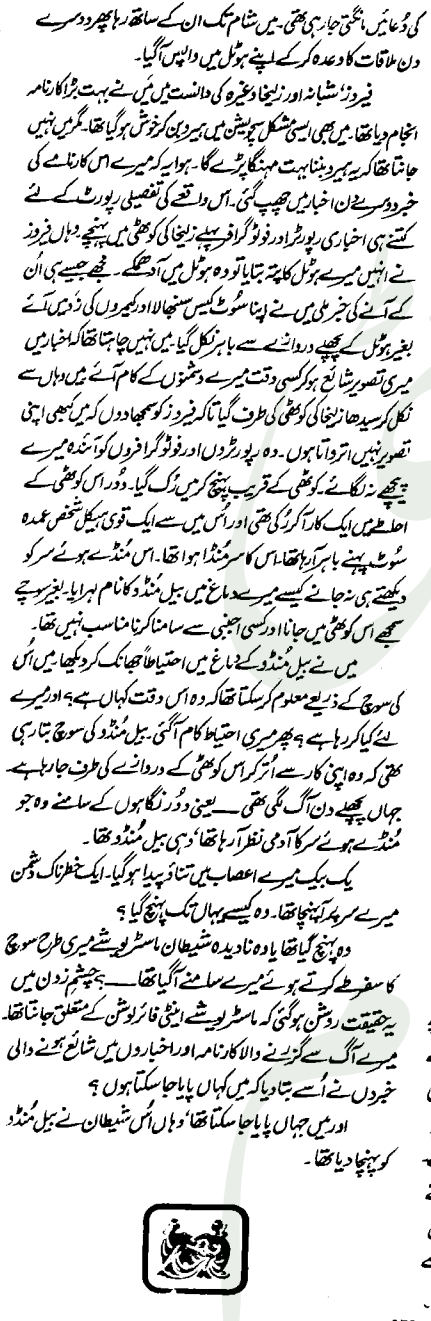 کی دُعائیں مانگتی جا رہی تھی۔ میں شام تک ان کے ساتھ رہا پھر دوسرے
دن ملاقات کا وعدہ کر کے اپنے ہوٹل میں واپس آ گیا۔
فیروز، شبانہ اور زلیخا وغیرہ کی دانست میں میں نے بہت بڑا کارنامہ
انجام دیا تھا۔ میں بھی ایسی مشکل سچویشن میں ہیرو بن کر خوش ہو گیا تھا۔ مگر میں نہیں
جانتا تھا کہ یہ ہیرو بننا بہت مہنگا پڑے گا۔ ہوا یہ کہ میرے اس کارنامے کی
خبر دوسرے دن اخبار میں چھپ گئی۔ اس واقعے کی تفصیلی رپورٹ کے لئے
کتنے ہی اخباری رپورٹر اور فوٹو گرافر پہلے زلیخا کی کوٹھی میں پہنچے۔ وہاں فیروز
نے انہیں میرے ہوٹل کا پتہ بتایا تو وہ ہوٹل میں آ دھمکے۔ مجھے جیسے ہی اُن
کے آنے کی خبر ملی میں نے اپنا سُوٹ کیس سنبھالا اور کیمروں کی زد میں آئے
بغیر ہوٹل کے پچھلے دروازے سے باہر نکل گیا۔ میں نہیں چاہتا تھا کہ اخبار میں
میری تصویر شائع ہو کر کسی وقت میرے دشمنوں کے کام آئے میں وہاں سے
نکل کر سیدھا زلیخا کی کوٹھی کی طرف گیا تاکہ فیروز کو سمجھا دوں کہ میں کبھی اپنی
تصویر نہیں اترواتا ہوں۔ وہ رپورٹروں اور فوٹو گرافروں کو آئندہ میرے
پیچھے نہ لگائے۔ کوٹھی کے قریب پہنچ کر میں رُک گیا۔ دُور اس کوٹھی کے
احاطے میں ایک کار آ کر رُکی تھی اور اُس میں سے ایک قوی ہیکل شخص عمدہ
سُوٹ پہنے باہر آ رہا تھا۔ اس کا سر مُنڈا ہوا تھا۔ اس مُنڈے ہوئے سر کو
دیکھتے ہی نہ جانے کیسے میرے دماغ میں بیل مُنڈو کا نام لہرایا۔ بغیر سوچے
سمجھے اس کوٹھی میں جانا اور کسی اجنبی سے سامنا کرنا مناسب نہیں تھا۔
میں نے بیل مُنڈو کے دماغ میں احتیاطاً جھانک کر دیکھا۔ میں اُس
کی سوچ کے ذریعے معلوم کر سکتا تھا کہ وہ اس وقت کہاں ہے؟ اور میرے
لئے کیا کر رہا ہے؟ پھر میری احتیاط کام آ گئی۔ بیل مُنڈو کی سوچ بتا رہی
تھی کہ وہ اپنی کار سے اُتر کر اس کوٹھی کے دروازے کی طرف جا رہا ہے
جہاں پچھلے دن آگ لگی تھی ـــ یعنی دُور نگاہوں کے سامنے وہ جو
مُنڈے ہوئے سر کا آدمی نظر آ رہا تھا، وہی بیل مُنڈو تھا۔
یک بیک میرے اعصاب میں تناؤ پیدا ہو گیا۔ ایک خطرناک دشمن
میرے سر پر آ پہنچا تھا۔ وہ کیسے یہاں تک پہنچ گیا؟
وہ پہنچ گیا تھا یا وہ نادیدہ شیطان ماسٹر یوشے میری طرح سوچ
کا سفر طے کرتے ہوئے میرے سامنے آ گیا تھا ـــ؟ چشم زدن میں
یہ حقیقت روشن ہو گئی کہ ماسٹر یوشے اینٹی فائر لوشن کے متعلق جانتا تھا۔
میرے آگ سے گزرنے والا کارنامہ اور اخباروں میں شائع ہونے والی
خبروں نے اُسے بتا دیا کہ میں کہاں پایا جا سکتا ہوں؟
اور میں جہاں پایا جا سکتا تھا، وہاں اُس شیطان نے بیل مُنڈو
کو پہنچا دیا تھا۔